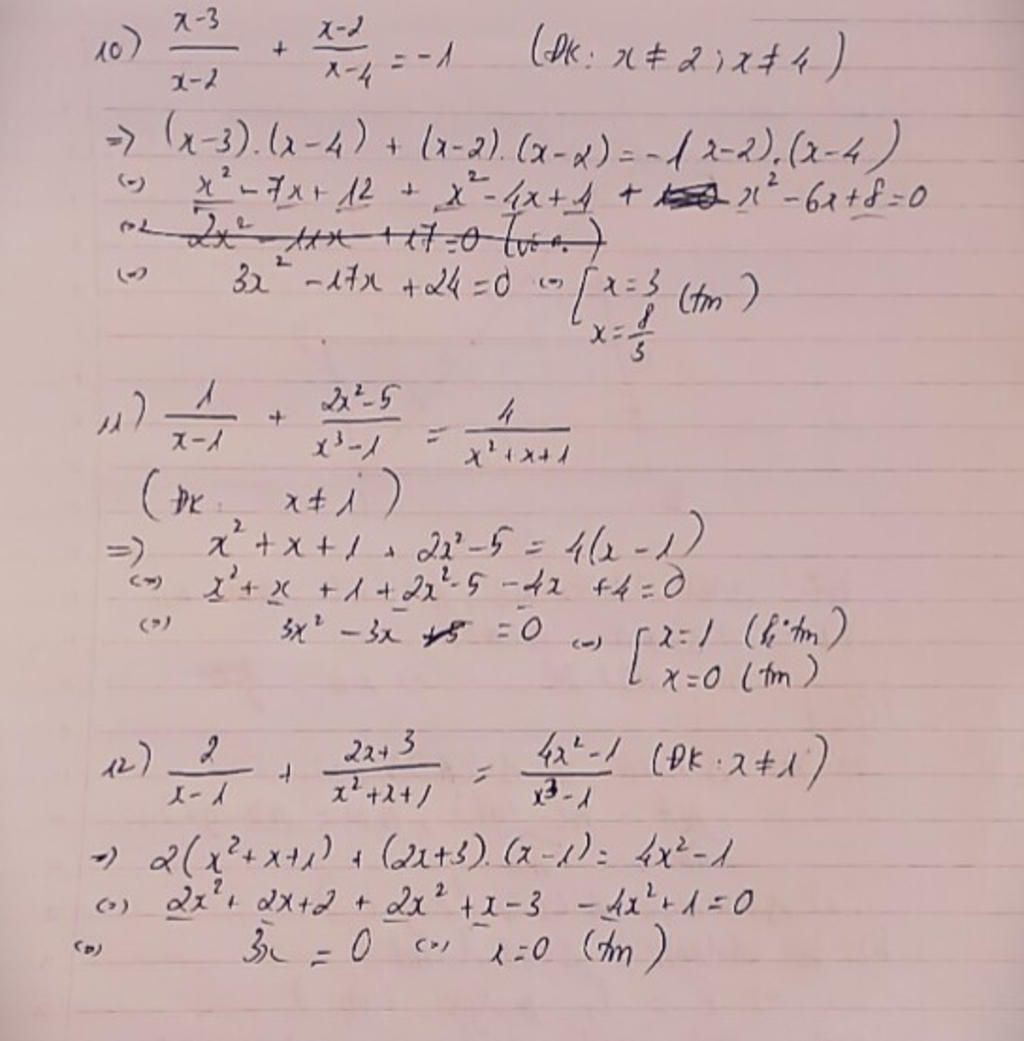 10) \frac{x-3}{x-2} + \frac{x-2}{x-4} = -1 (ĐK: x ≠ 2; x ≠ 4)
=> (x-3).(x-4) + (x-2).(x-2) = -1(x-2).(x-4)
(=) x² - 7x + 12 + x² - 4x + 4 + x² - 6x + 8 = 0
2x² - 11x + 17 = 0
(=) 3x² - 17x + 24 = 0 (=) [ x = 3 (tm)
x = \frac{8}{3}
11) \frac{1}{x-1} + \frac{2x²-5}{x³-1} = \frac{4}{x²+x+1}
(ĐK: x ≠ 1)
=> x² + x + 1 + 2x² - 5 = 4(x - 1)
(=) x² + x + 1 + 2x² - 5 - 4x + 4 = 0
(=) 3x² - 3x = 0 (=) [ x = 1 (k.tm)
x = 0 (tm)
12) \frac{2}{x-1} + \frac{2x+3}{x²+x+1} = \frac{4x²-1}{x³-1} (ĐK: x ≠ 1)
=> 2(x²+x+1) + (2x+3).(x-1) = 4x²-1
(=) 2x² + 2x + 2 + 2x² + x - 3 - 4x² + 1 = 0
(=) 3x = 0 (=) x = 0 (tm)